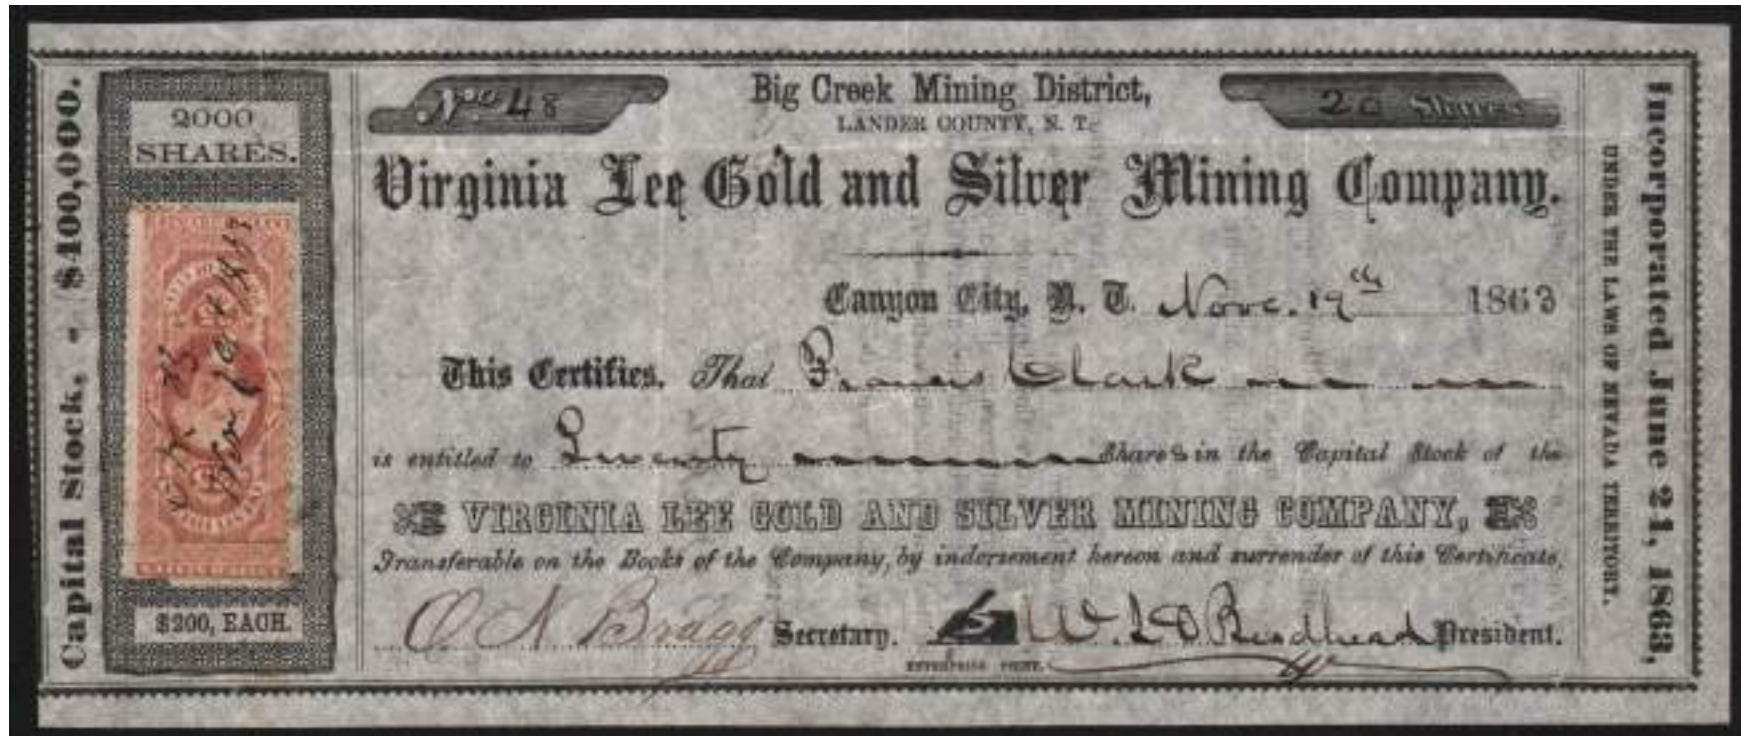 Capital Stock, - $400,000.
2000
SHARES.
$200, EACH.
No. 48
Big Creek Mining District,
LANDER COUNTY, N. T.
20 Shares
Virginia Lee Gold and Silver Mining Company.
Canyon City, N. T. Nov. 19th 1863
This Certifies, That Francis Clark
is entitled to Twenty Shares in the Capital Stock of the
VIRGINIA LEE GOLD AND SILVER MINING COMPANY,
Transferable on the Books of the Company, by indorsement hereon and surrender of this Certificate,
O N Bragg Secretary. W. President.
ENTERPRISE PRINT.
Incorporated June 21, 1863,
UNDER THE LAWS OF NEVADA TERRITORY.